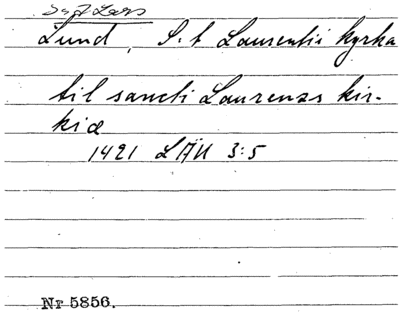 Lund, S:t Laurentii kyrka
til sancti Laurenzs kir-
kiæ
1421 LÄU 3:5
Nr 5856.